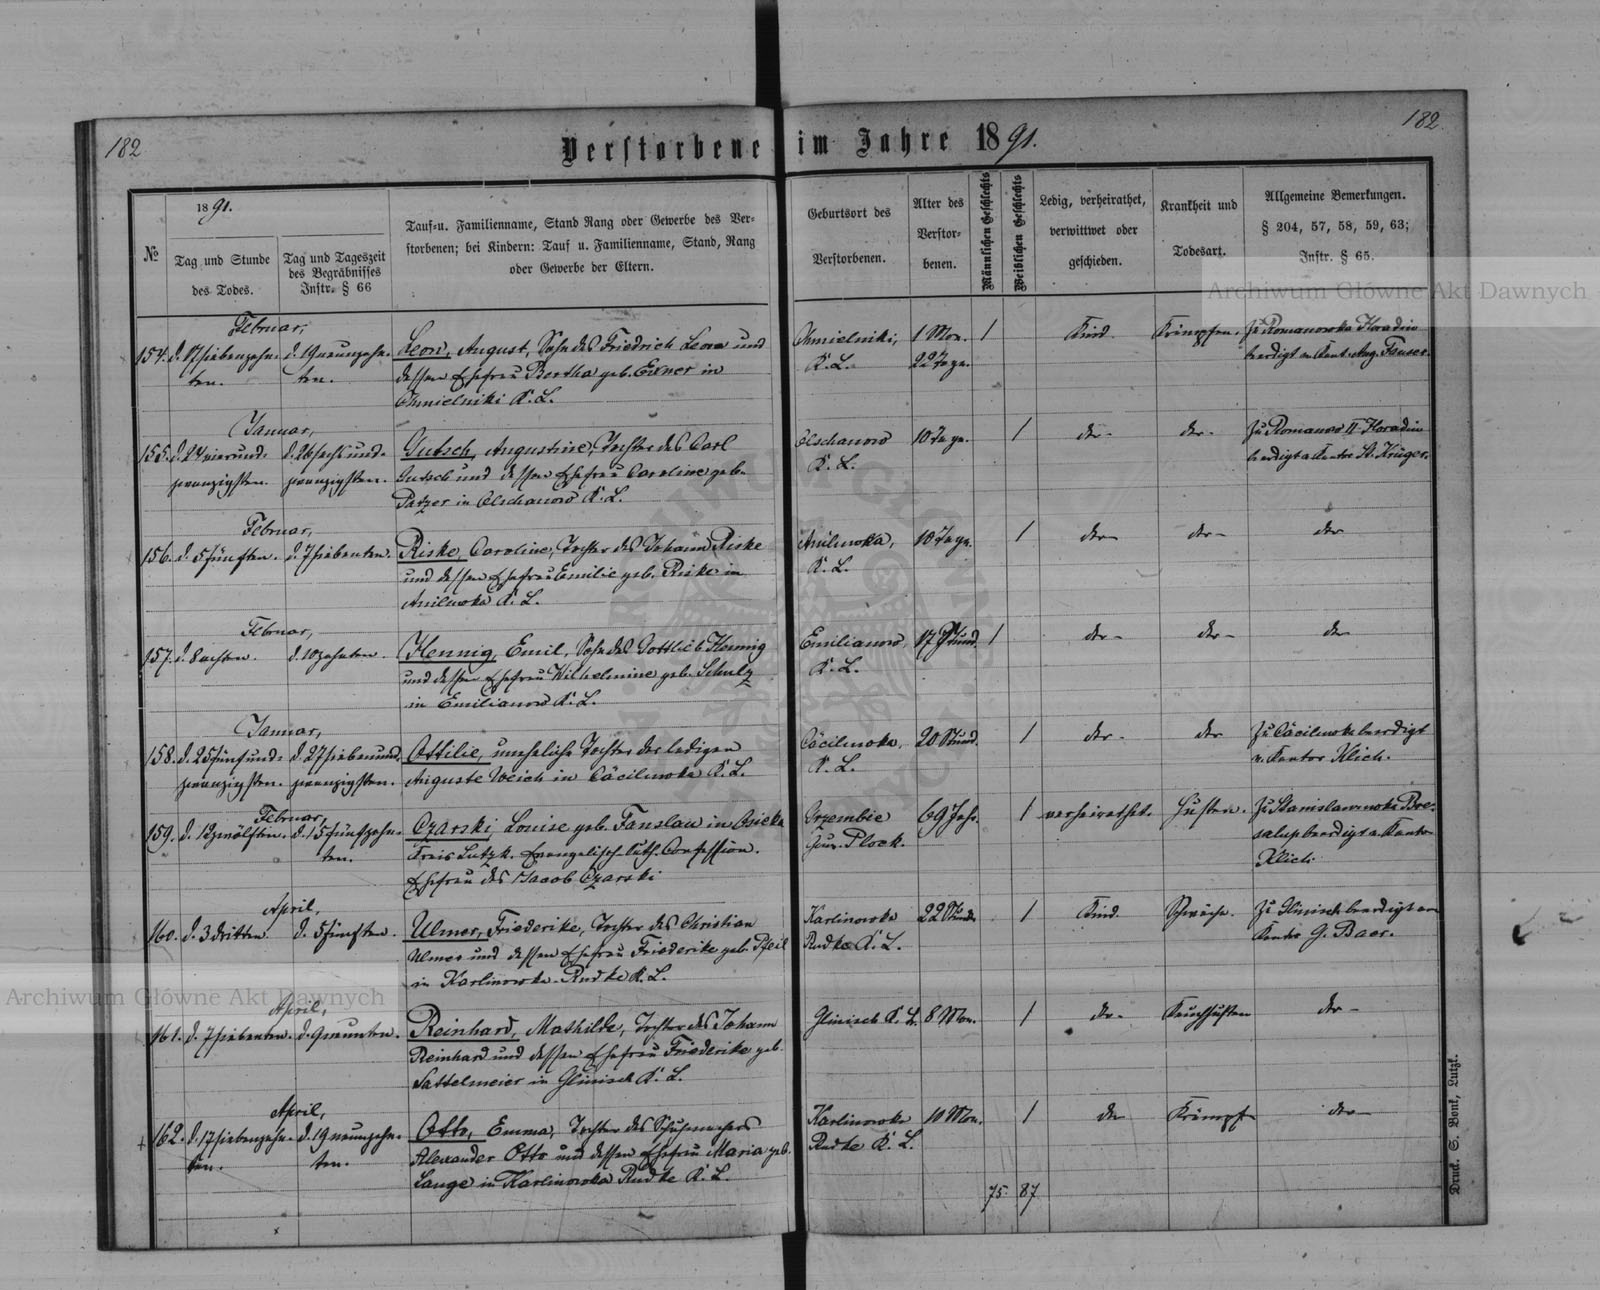 182
182.
Verstorbene im Jahre 1891.
№
1891.
Tag und Stunde
des Todes.
Tag und Tageszeit
des Begräbnisses
Instr. § 66
Tauf=u. Familienname, Stand Rang oder Gewerbe des Ver=
storbenen; bei Kindern: Tauf u. Familienname, Stand, Rang
oder Gewerbe der Eltern.
Geburtsort des
Verstorbenen.
Alter des
Verstor=
benen.
Männlichen Geschlechts
Weiblichen Geschlechts
Ledig, verheirathet,
verwittwet oder
geschieden.
Krankheit und
Todesart.
Allgemeine Bemerkungen.
§ 204, 57, 58, 59, 63;
Instr. § 65.
Archiwum Główne Akt Dawnych
Februar,
154. d. 17 siebenzehn-
ten.
d. 19 neunzehn-
ten.
Leon, August, Sohn des Friedrich Leon und
dessen Ehefrau Bertha geb. Exner in
Chmielniki K. L.
Chmielniki,
K. L.
1 Mon.
22 Tage.
1
Kind.
Krämpfen.
Zu Romanowka Horadin
beerdigt v. Kant. Aug. Fauser.
Januar,
155. d. 24 vierund-
zwanzigsten.
d. 26 sechsund-
zwanzigsten.
Gutsch, Augustine, Tochter des Carl
Gutsch und dessen Ehefrau Caroline geb.
Patzer in Olschanow K. L.
Olschanow
K. L.
10 Tage.
1
do-
do-
Zu Romanow II Horadin
beerdigt v. Kantor St. Krüger.
Februar,
156. d. 5 fünften.
d. 7 siebenten.
Riske, Caroline, Tochter des Johann Riske
und dessen Ehefrau Emilie geb. Riske in
K. L.
K. L.
10 Tage.
1
do-
do-
do
Februar,
157. d. 8 achten.
d. 10 zehnten.
Hennig, Emil, Sohn des Gottlieb Hennig
und dessen Ehefrau Wilhelmine geb. Schulz
in Emilianow K. L.
Emilianow
K. L.
17 Stund.
1
do-
do-
do
Januar,
158. d. 25 fünfund-
zwanzigsten.
d. 27 siebenund-
zwanzigsten.
Ottilie, uneheliche Tochter der ledigen
Auguste Weich in Cäcilowka K. L.
Cäcilowka,
K. L.
20 Stund.
1
do-
do
Zu Cäcilowka beerdigt
v. Kantor Klich.
Februar,
159. d. 12 zwölften.
d. 15 fünfzehn-
ten.
Czarski, Louise geb. Fanslau in Osieka
Kreis Lutzk. Evangelisch-Luth. Confession.
Ehefrau des Jacob Czarski
Grzembie
Gouv. Plock.
69 Jahr.
1
verheirathet.
Husten.
Zu Stanislawowka
beerdigt v. Kantor
Klich.
April,
160. d. 3 dritten.
d. 5 fünften.
Ulmer, Friederike, Tochter des Christian
Ulmer und dessen Ehefrau Friederike geb. Pfeil
in Karlinowka-Rudke K. L.
Karlinowka
Rudke K. L.
22 Stunde
1
Kind.
Schwäche.
Zu Glinisch beerdigt v.
Kantor G. Baer.
Archiwum Główne Akt Dawnych
April,
161. d. 7 siebenten.
d. 9 neunten.
Reinhard, Mathilde, Tochter des Johann
Reinhard und dessen Ehefrau Friederike geb.
Sattelmeier in Glinisch K. L.
Glinisch K. L.
8 Mon.
1
do-
Keuchhusten
do-
April,
162. d. 17 siebenzehn-
ten.
d. 19 neunzehn-
ten.
Otto, Emma, Tochter des Schuhmachers
Alexander Otto und dessen Ehefrau Maria geb.
Lange in Karlinowka Rudke K. L.
Karlinowka
Rudke K. L.
10 Mon.
1
do
Krämpfe
do-
75. 87
Druck. S. Bonk, Lutzk.